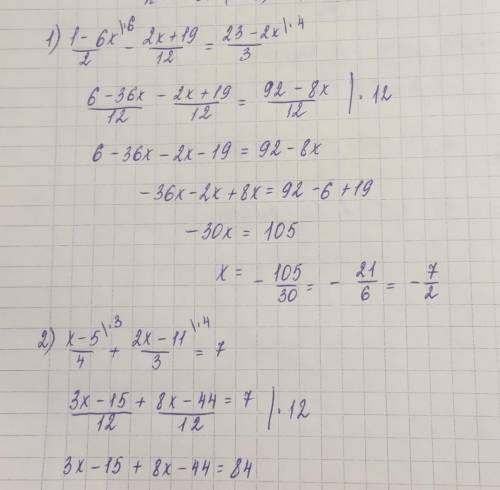 1) (1 - 6x)/2 \·6 - (2x + 19)/12 = (23 - 2x)/3 \·4
(6 - 36x)/12 - (2x + 19)/12 = (92 - 8x)/12 | · 12
6 - 36x - 2x - 19 = 92 - 8x
-36x - 2x + 8x = 92 - 6 + 19
-30x = 105
x = - 105/30 = - 21/6 = - 7/2
2) (x - 5)/4 \·3 + (2x - 11)/3 \·4 = 7
(3x - 15)/12 + (8x - 44)/12 = 7 | · 12
3x - 15 + 8x - 44 = 84